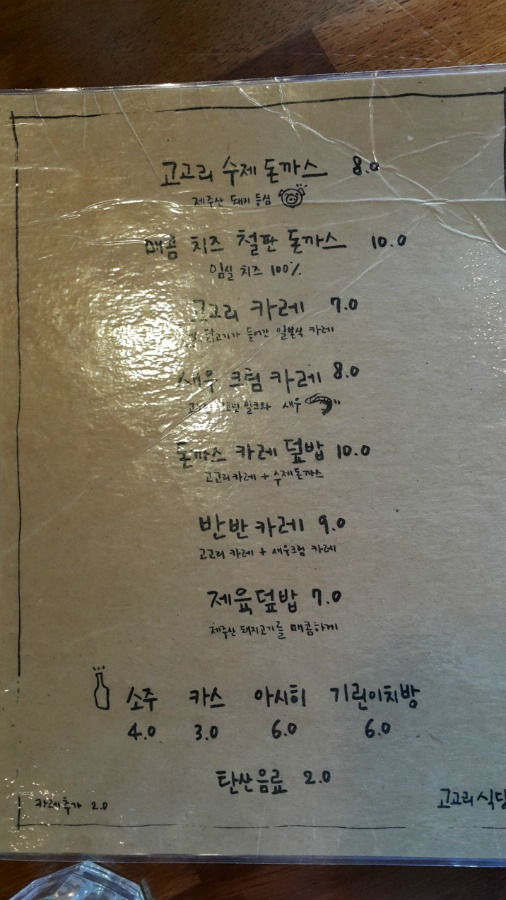 고고리 수제 돈까스 8.0
제주산 돼지 등심
매콤 치즈 철판 돈까스 10.0
임실 치즈 100%
고고리 카레 7.0
닭고기가 들어간 일본식 카레
새우 크림 카레 8.0
새우
돈까스 카레 덮밥 10.0
고고리카레 + 수제돈까스
반반카레 9.0
고고리 카레 + 새우크림 카레
제육덮밥 7.0
제주산 돼지고기를 매콤하게
소주 카스 아사히 기린이치방
4.0 3.0 6.0 6.0
탄산음료 2.0
카레추가 2.0
고고리식당